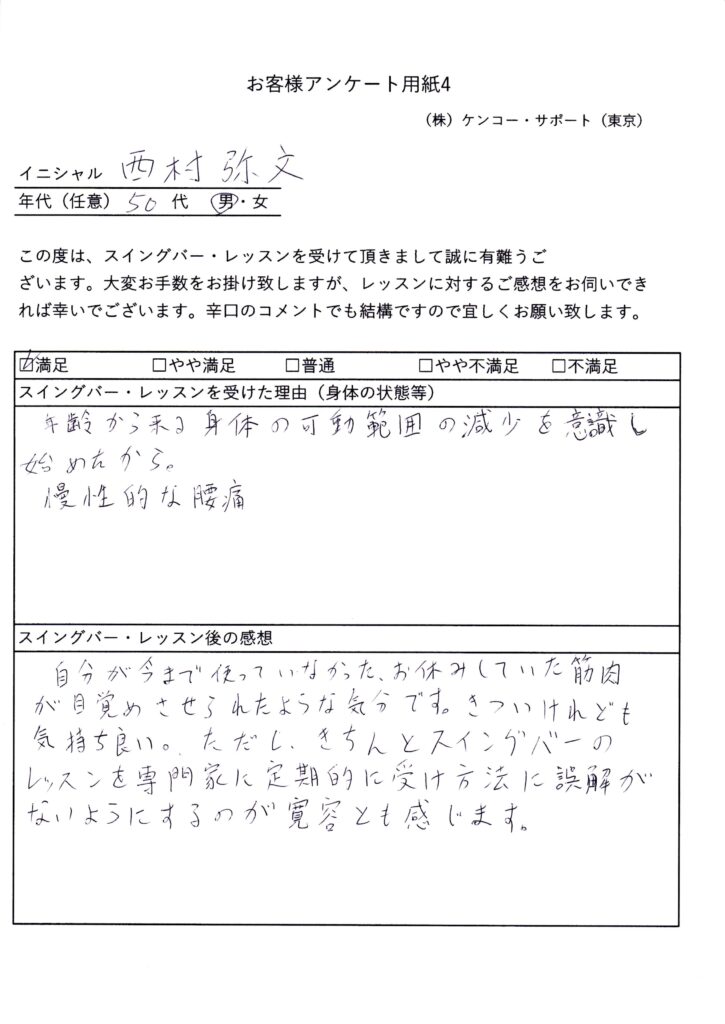 お客様アンケート用紙4
（株）ケンコー・サポート（東京）
イニシャル 西村弥文
年代（任意）50代 男・女
この度は、スイングバー・レッスンを受けて頂きまして誠に有難うご
ざいます。大変お手数をお掛け致しますが、レッスンに対するご感想をお伺いでき
れば幸いでございます。辛口のコメントでも結構ですので宜しくお願い致します。
☑満足 □やや満足 □普通 □やや不満足 □不満足
スイングバー・レッスンを受けた理由（身体の状態等）
年齢から来る身体の可動範囲の減少を意識し
始めたから。
慢性的な腰痛
スイングバー・レッスン後の感想
自分が今まで使っていなかった、お休みしていた筋肉
が目覚めさせられたような気分です。きついけれども
気持ち良い。ただし、きちんとスイングバーの
レッスンを専門家に定期的に受け方法に誤解が
ないようにするのが寛容とも感じます。